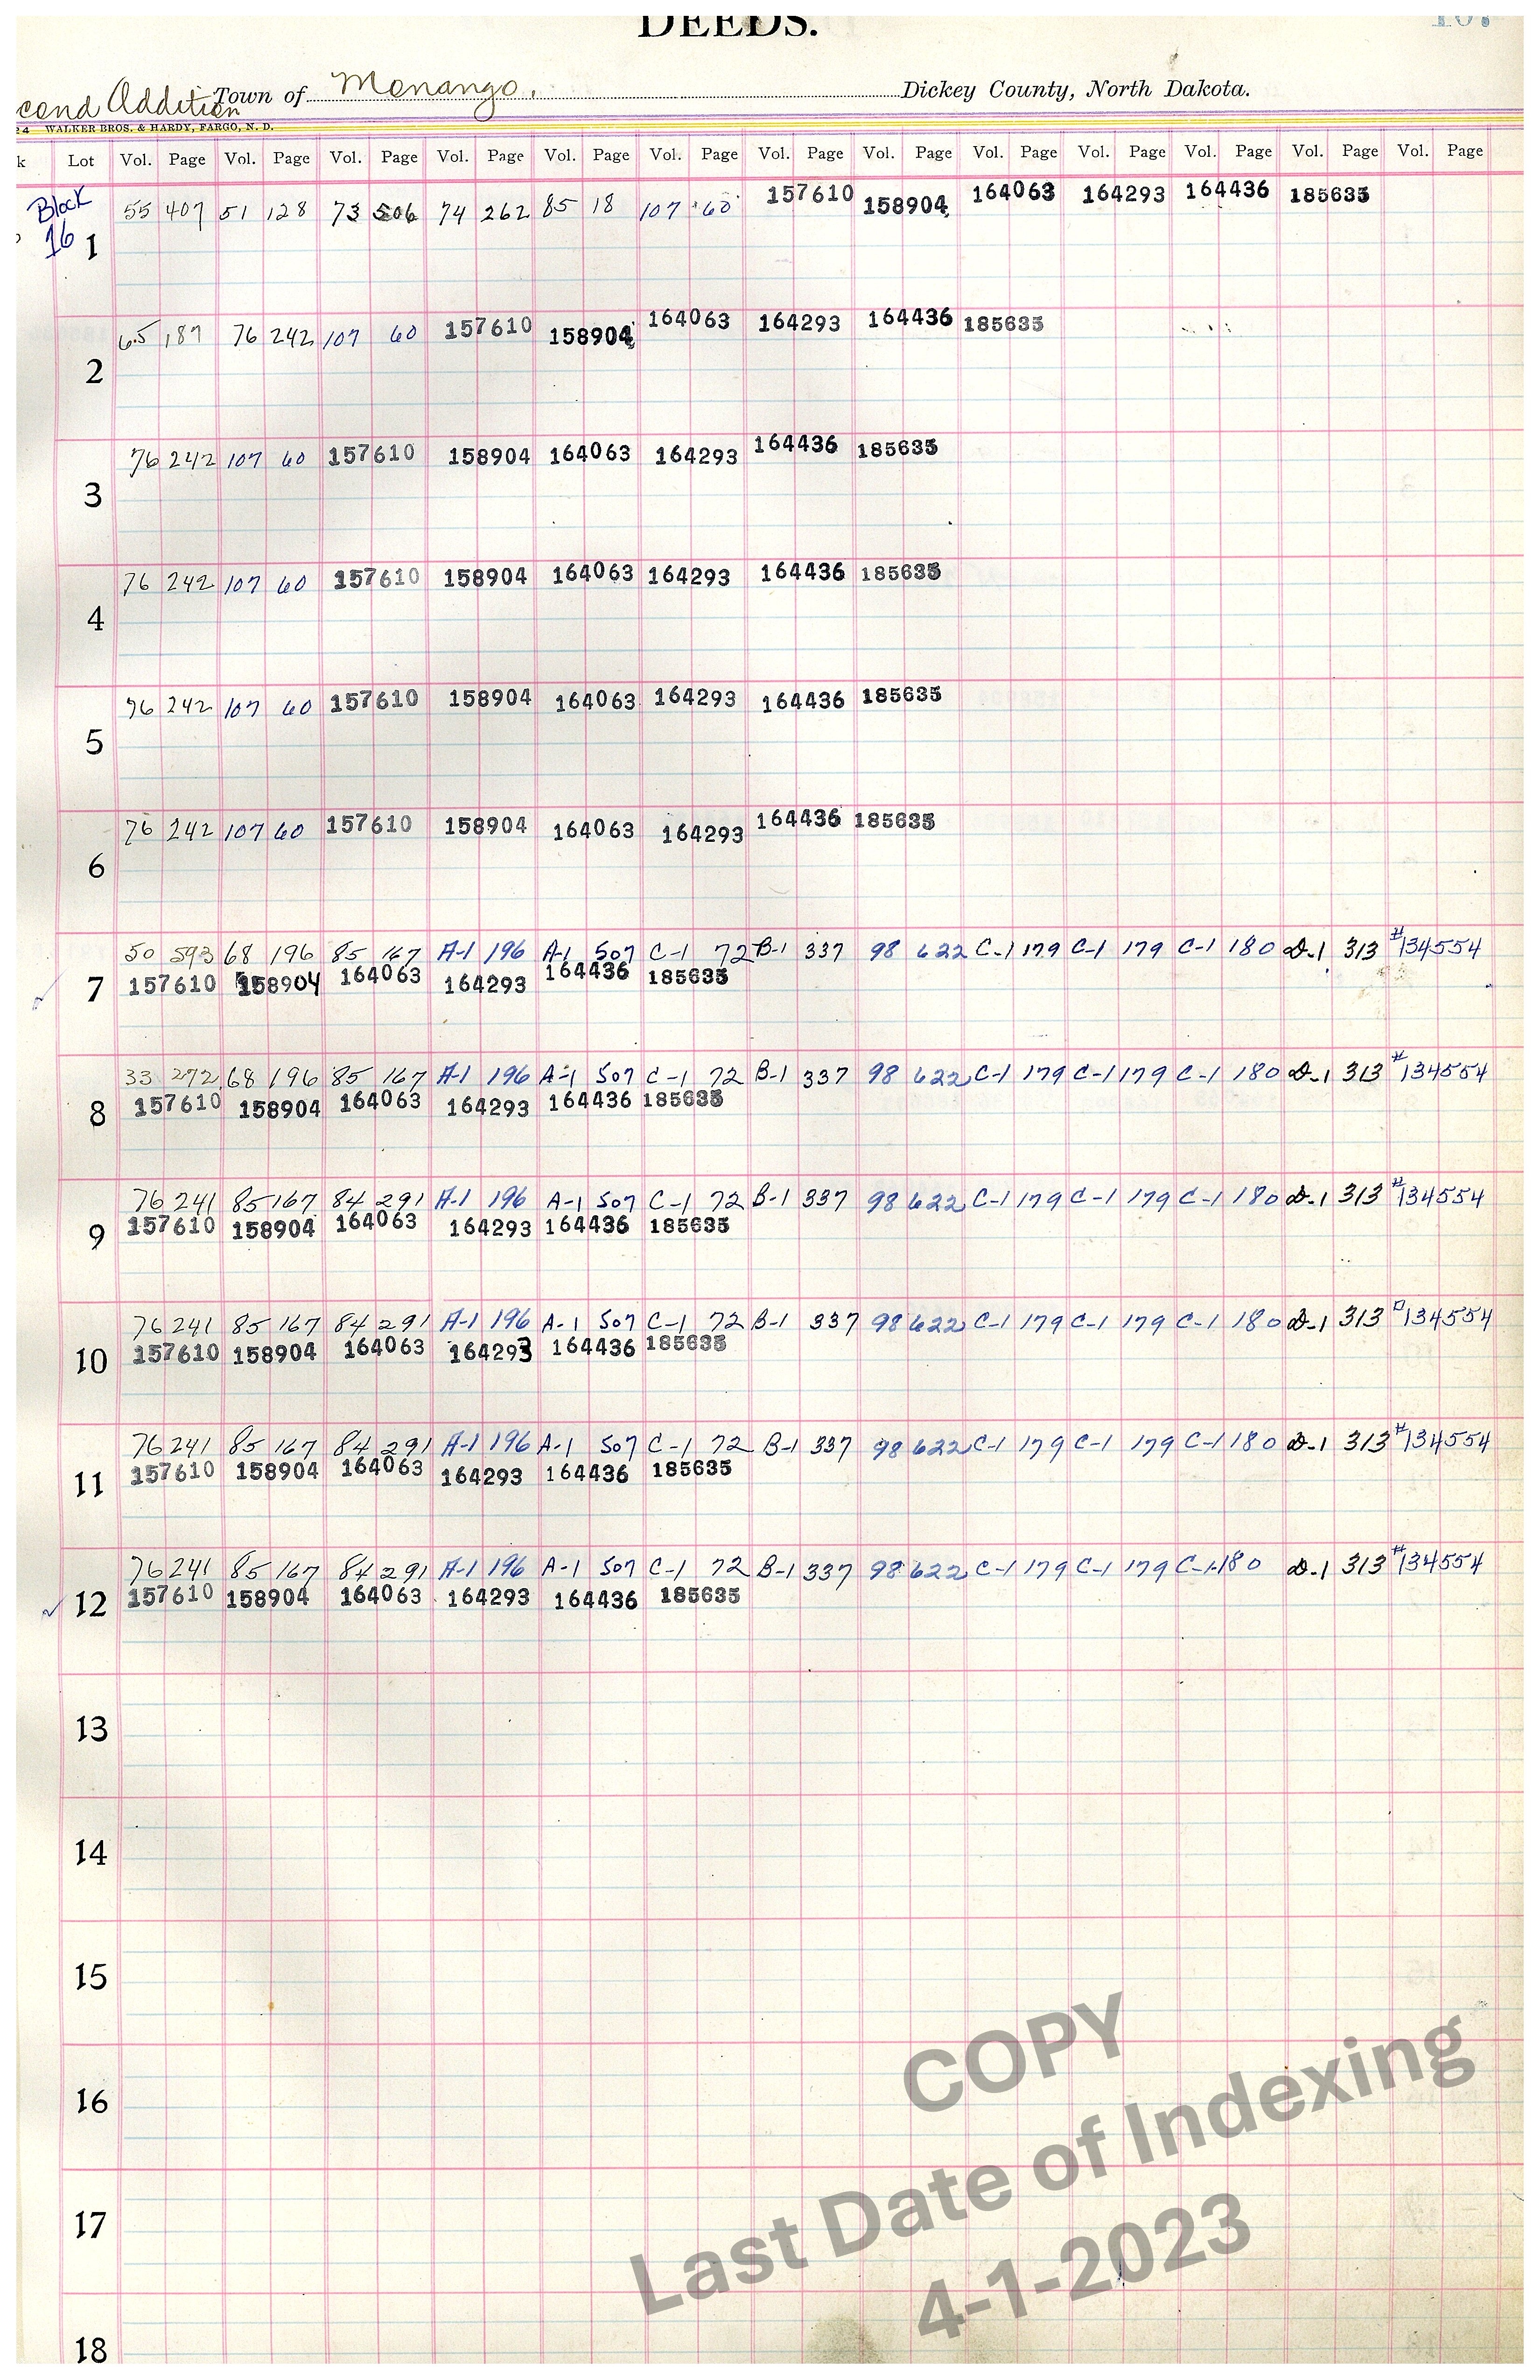 DEEDS.
107
cond Addition Town of Monango, Dickey County, North Dakota.
24 WALKER BROS. & HARDY, FARGO, N. D.
k Lot Vol. Page Vol. Page Vol. Page Vol. Page Vol. Page Vol. Page Vol. Page Vol. Page Vol. Page Vol. Page Vol. Page Vol. Page Vol. Page
Block 16
1 55 407 51 128 73 506 74 262 85 18 107 60 157610 158904 164063 164293 164436 185635
2 65 187 76 242 107 60 157610 158904 164063 164293 164436 185635
3 76 242 107 60 157610 158904 164063 164293 164436 185635
4 76 242 107 60 157610 158904 164063 164293 164436 185635
5 76 242 107 60 157610 158904 164063 164293 164436 185635
6 76 242 107 60 157610 158904 164063 164293 164436 185635
50 593 68 196 85 167 A-1 196 A-1 507 C-1 72 B-1 337 98 622 C-1 179 C-1 179 C-1 180 D-1 313 #134554
7 157610 158904 164063 164293 164436 185635
33 272 68 196 85 167 A-1 196 A-1 507 C-1 72 B-1 337 98 622 C-1 179 C-1 179 C-1 180 D-1 313 #134554
8 157610 158904 164063 164293 164436 185635
76 241 85 167 84 291 A-1 196 A-1 507 C-1 72 B-1 337 98 622 C-1 179 C-1 179 C-1 180 D-1 313 #134554
9 157610 158904 164063 164293 164436 185635
76 241 85 167 84 291 A-1 196 A-1 507 C-1 72 B-1 337 98 622 C-1 179 C-1 179 C-1 180 D-1 313 #134554
10 157610 158904 164063 164293 164436 185635
76 241 85 167 84 291 A-1 196 A-1 507 C-1 72 B-1 337 98 622 C-1 179 C-1 179 C-1 180 D-1 313 #134554
11 157610 158904 164063 164293 164436 185635
76 241 85 167 84 291 A-1 196 A-1 507 C-1 72 B-1 337 98 622 C-1 179 C-1 179 C-1 180 D-1 313 #134554
12 157610 158904 164063 164293 164436 185635
13
14
15
16
17
18
COPY
Last Date of Indexing
4-1-2023